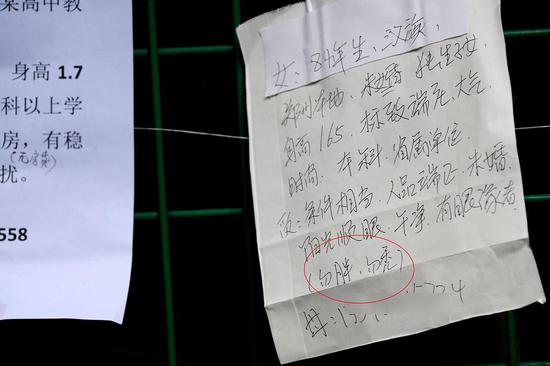 某高中教
身高 1.7
科以上学
房，有稳
(无房贷)
扰。
558
女：84年生、汉族
郑州本地 未婚 独生子女
身高165、标致端庄、大气
时尚、本科、省属单位
段：条件相当、人品端正、未婚
阳光顺眼、干净、有眼缘者
(勿胖、勿秃)
母：